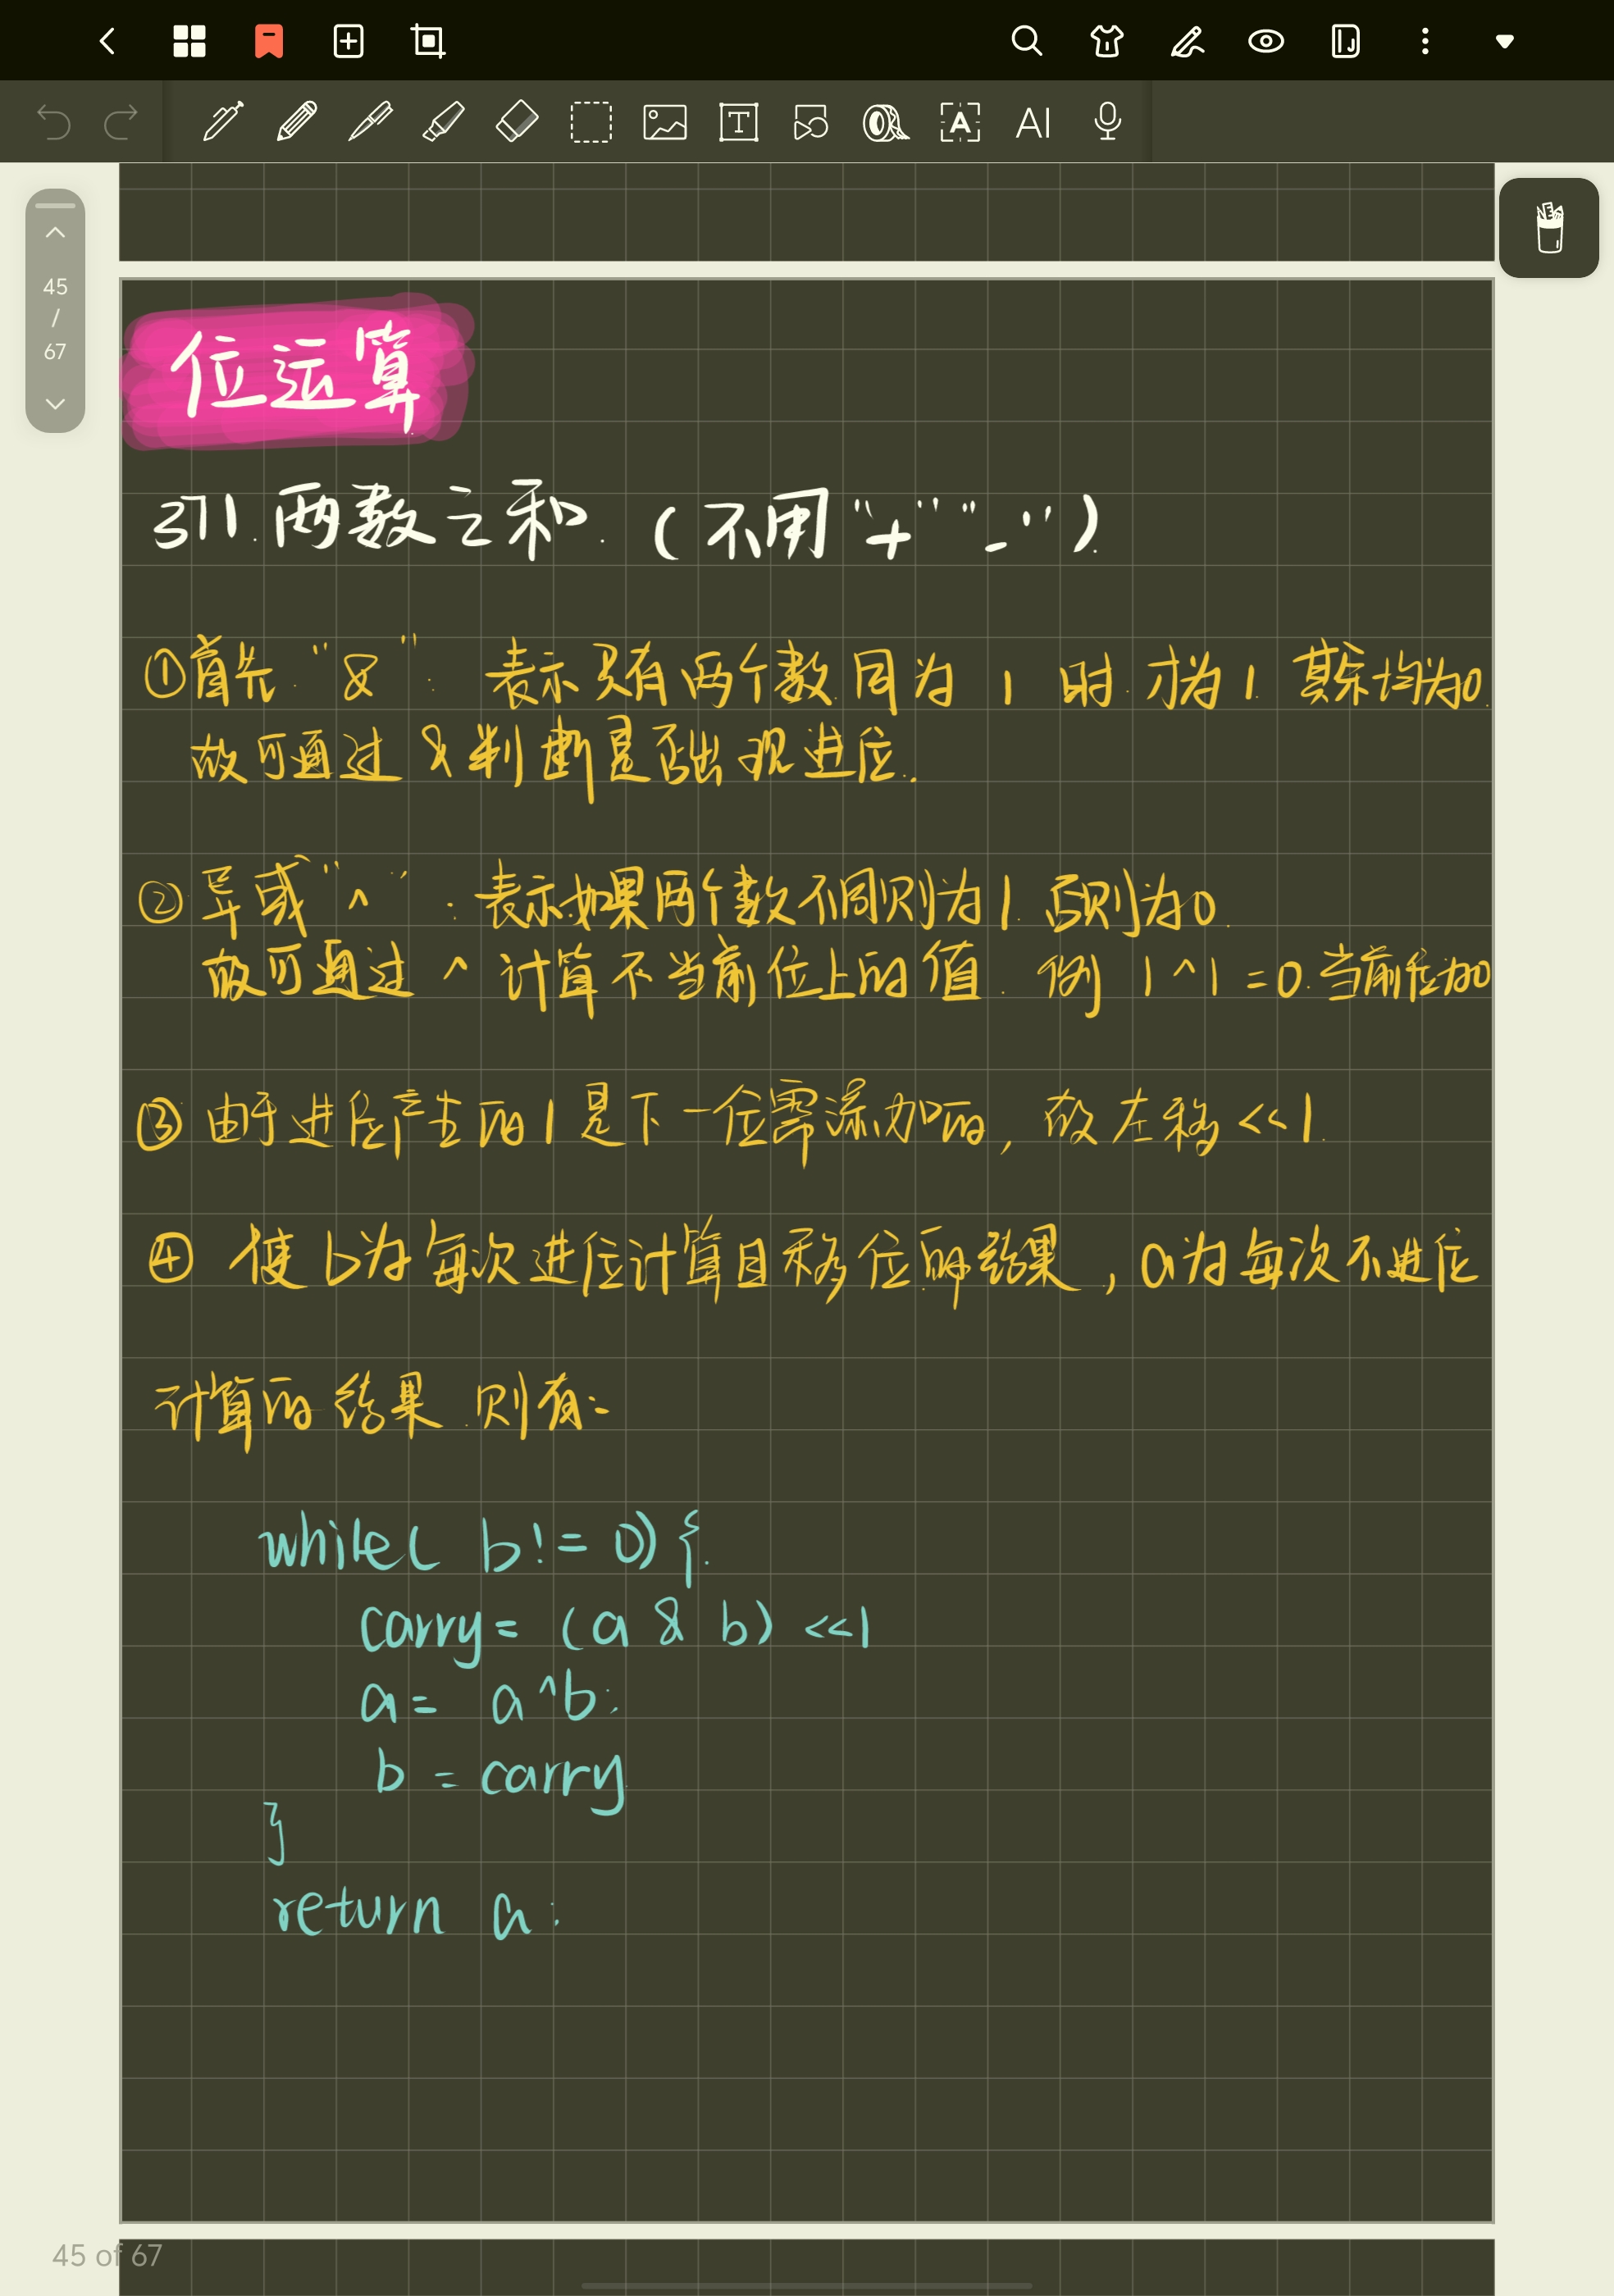 45
/
67
位运算
371.两数之和.(不用"+""-")
①首先"&": 表示只有两个数同为 1 时 才为1. 其余均为0.
故可通过 & 判断是否出现进位.
②异或"^": 表示如果两个数不同则为1. 否则为0.
故可通过 ^ 计算不当前位上的值. 例 1^1=0.当前位为0
③由于进位产生的1是下一位需添加的, 故左移<<1.
④ 使 b为每次进位计算且移位的结果, a为每次不进位
计算的结果.则有:
while( b!= 0){
carry= (a & b) <<1
a= a^b;
b = carry
}
return a;
45 of 67